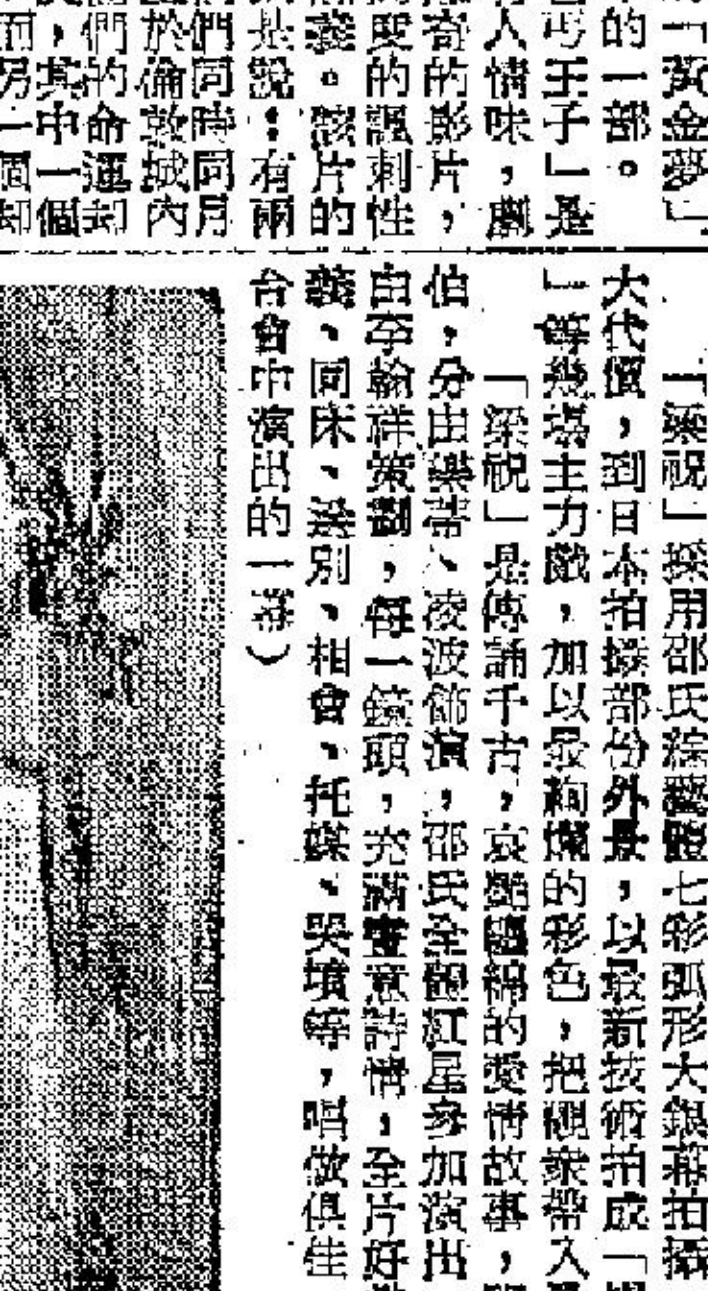 「黃金夢」
的一部。
丐王子」是
人情味，劇
奇的影片，
度的諷刺性
義。該片的
是說：有兩
們同時同月
於倫敦城內
們的命運却
，其中一個
而另一個却
「梁祝」採用邵氏綜藝體七彩弧形大銀幕拍攝
大代價，到日本拍攝部份外景，以最新技術拍成「
」等幾場主力戲，加以最絢爛的彩色，把觀衆帶入
「梁祝」是傳誦千古，哀艷纏綿的愛情故事，
伯，分由樂蒂、凌波飾演，邵氏全體紅星參加演出
由李翰祥策劃，每一鏡頭，充滿畫意詩情，全片好
義、同床、送別、相會、托媒、哭墳等，唱做俱佳
台會中演出的一幕）